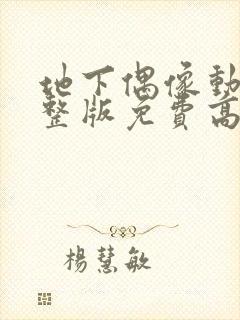 地下偶像動
整版免費高
楊慧敏